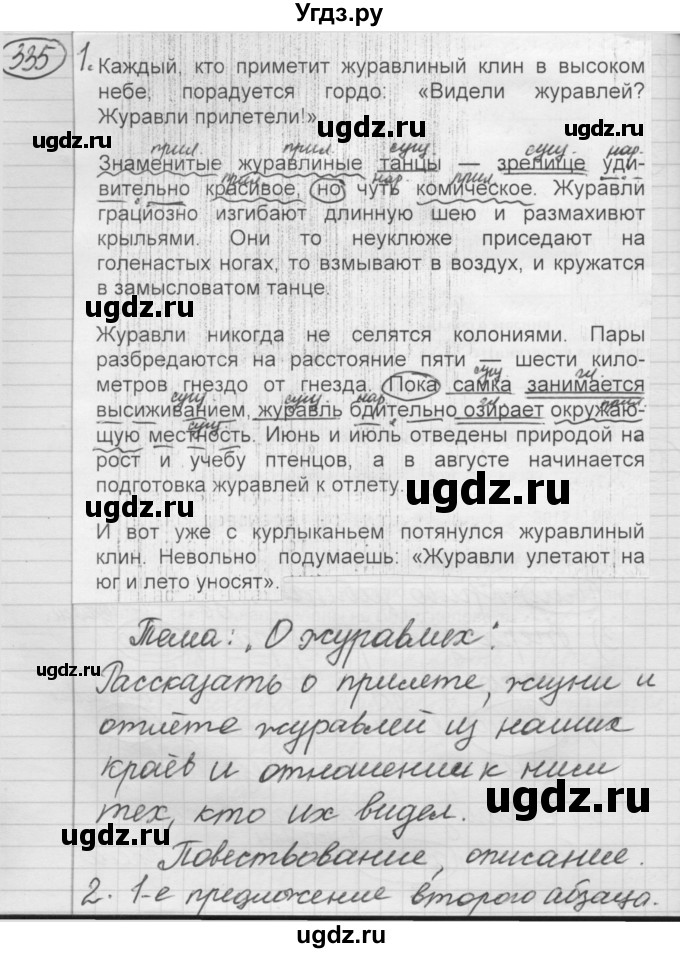 Угдз.ру
335 1. Каждый, кто приметит журавлиный клин в высоком
небе, порадуется гордо: «Видели журавлей?
Журавли прилетели!»
ugdz.ru ugdz.ru
прил. прил. сущ. сущ. нар.
Знаменитые журавлиные танцы — зрелище уди-
прил. нар. прил.
вительно красивое, но чуть комическое. Журавли
грациозно изгибают длинную шею и размахивют
крыльями. Они то неуклюже приседают на
голенастых ногах, то взмывают в воздух, и кружатся
в замысловатом танце.
ugdz.ru ugdz.ru
Журавли никогда не селятся колониями. Пары
разбредаются на расстояние пяти — шести кило-
сущ. гл.
метров гнездо от гнезда. Пока самка занимается
сущ. сущ. нар. гл. прил.
высиживанием, журавль бдительно озирает окружаю-
сущ.
щую местность. Июнь и июль отведены природой на
рост и учебу птенцов, а в августе начинается
подготовка журавлей к отлету.
ugdz.ru ugdz.ru
И вот уже с курлыканьем потянулся журавлиный
клин. Невольно подумаешь: «Журавли улетают на
юг и лето уносят».
Тема: „О журавлях".
ugdz.ru ugdz.ru
Рассказать о прилете, жизни и
отлёте журавлей из наших
краёв и отношении к ним
тех, кто их видел.
ugdz.ru ugdz.ru
Повествование, описание.
2. 1-е предложение второго абзаца.
ugdz.ru